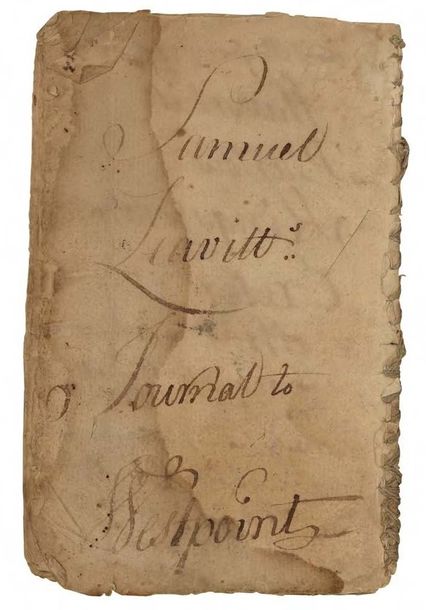 Samuel
Leavitt's
Journal to
Westpoint